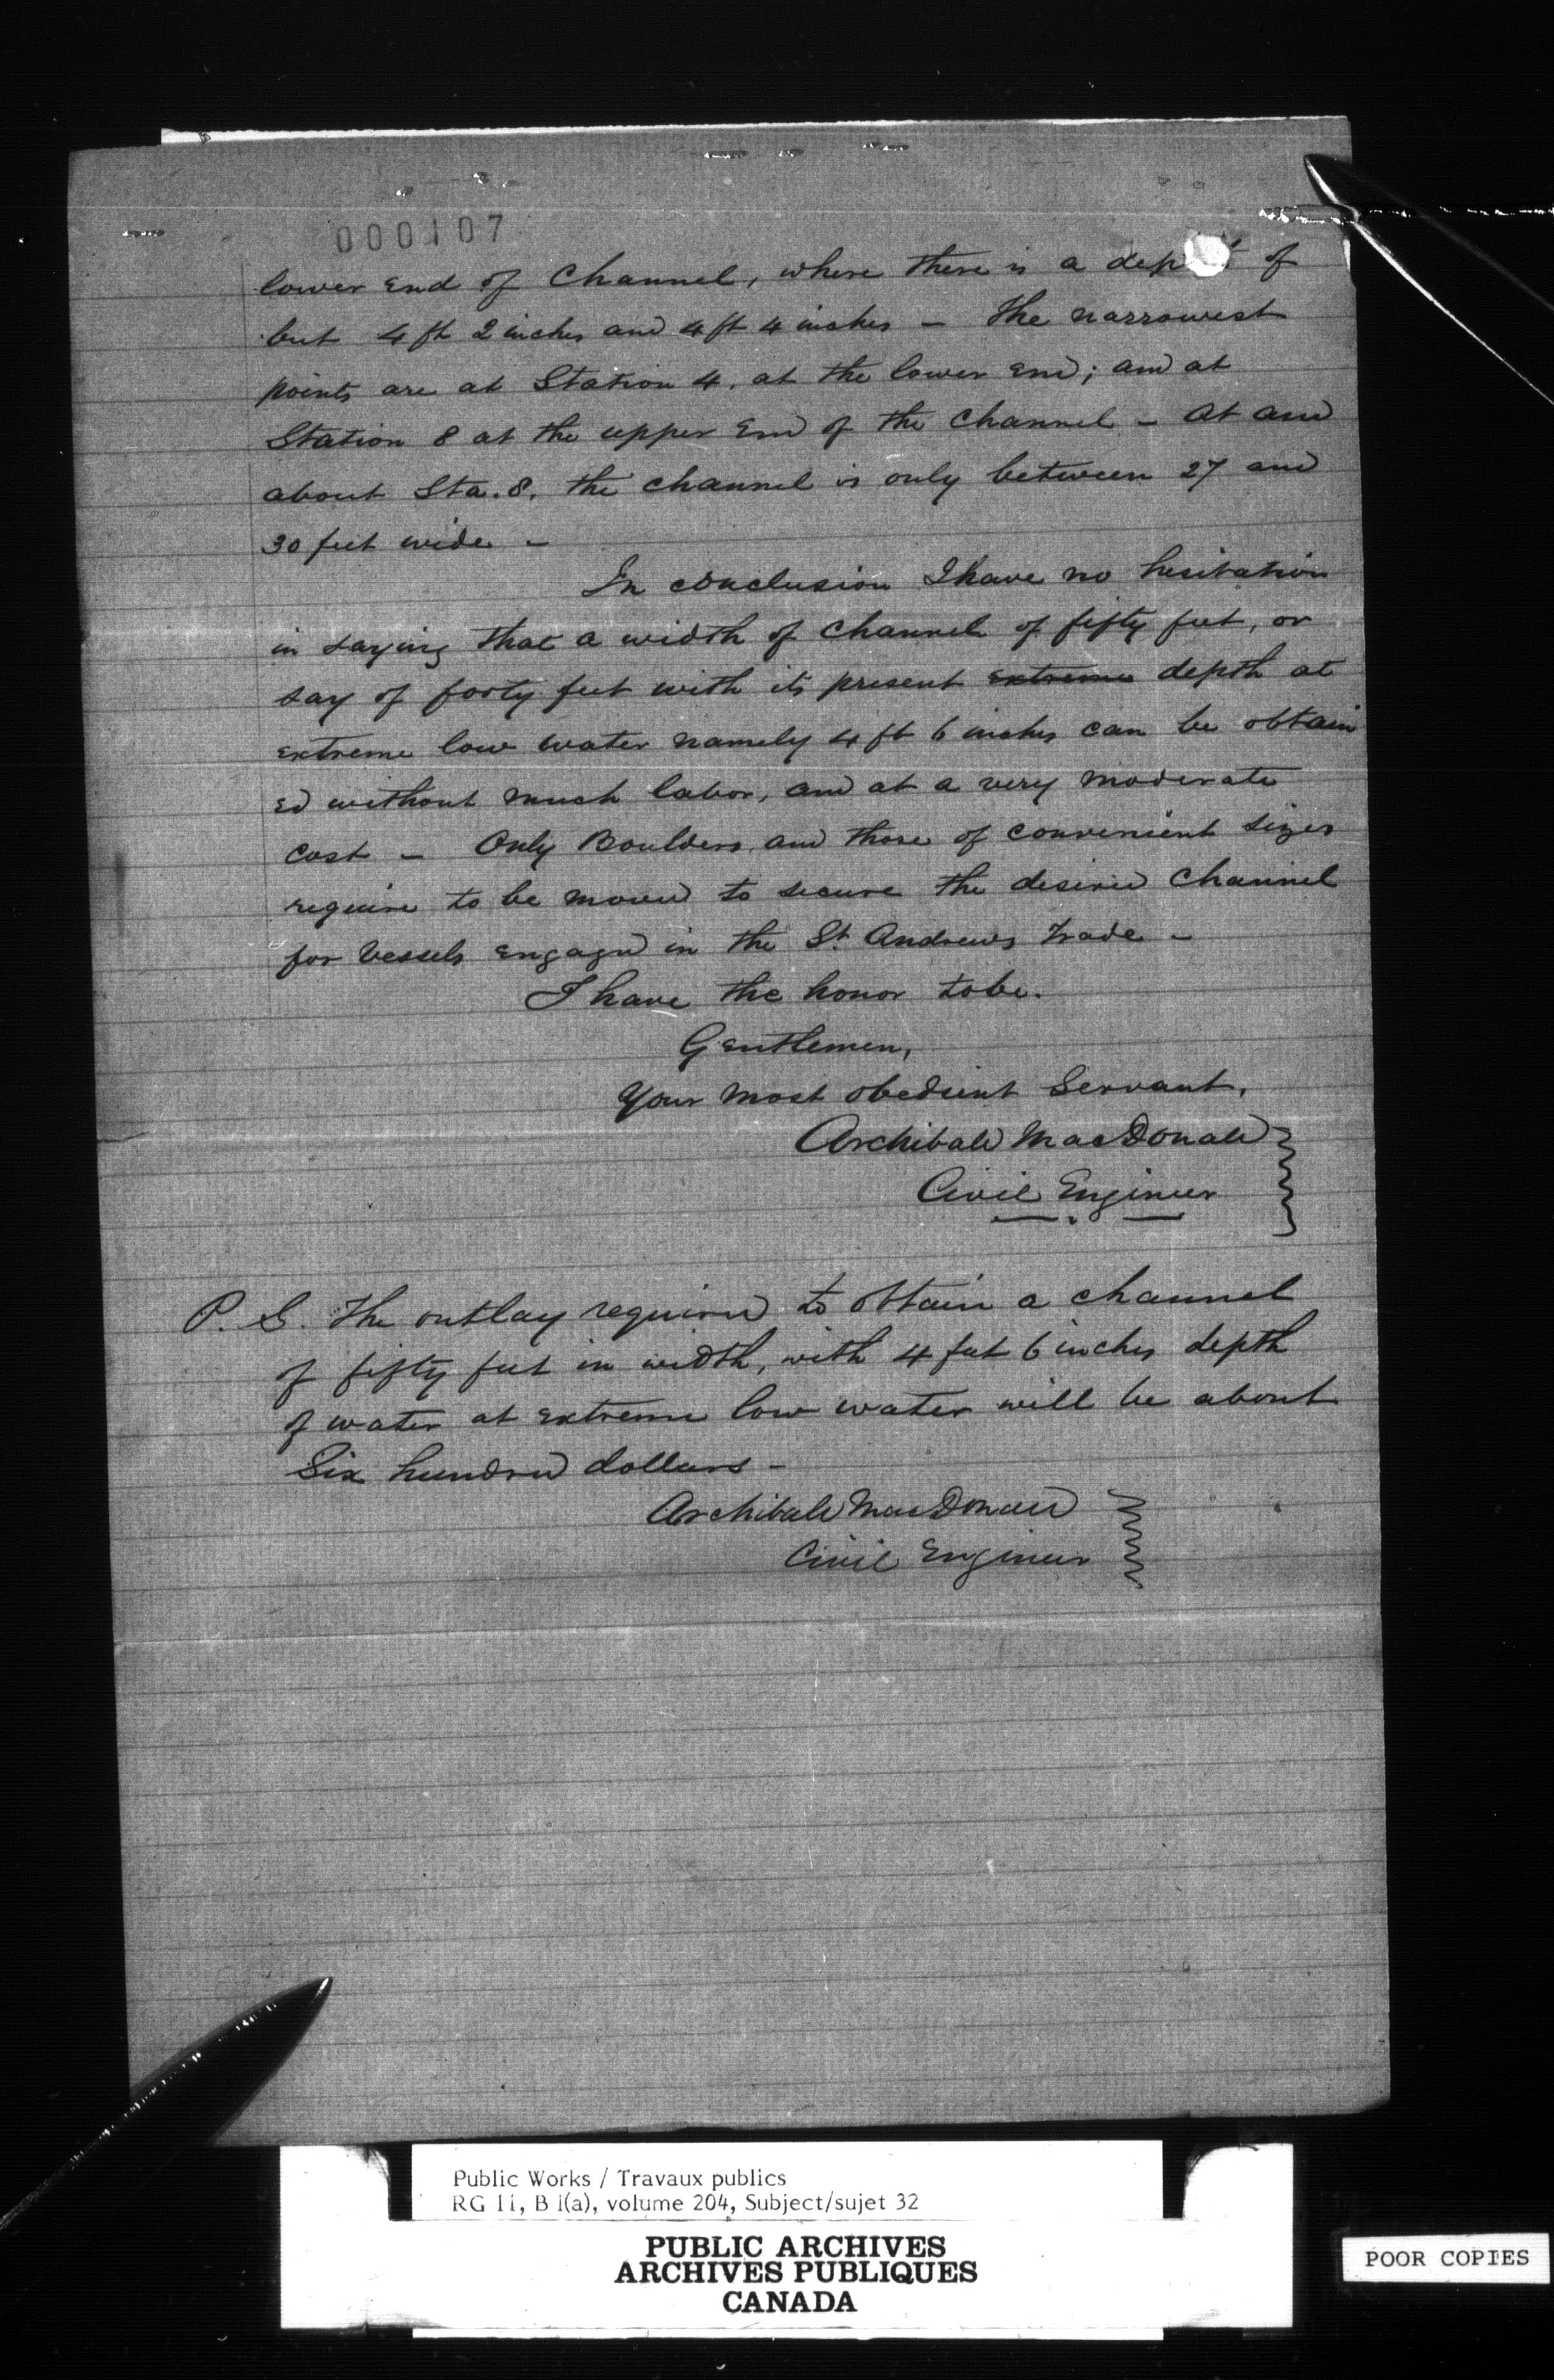 000107
lower End of Channel, where there is a depth of
but 4 ft 2 inches and 4 ft 4 inches - The narrowest
points are at Station 4. at the lower End; and at
Station 8 at the upper End of the Channel - At and
about Sta. 8. the channel is only between 27 and
30 feet wide -
In conclusion I have no hesitation
in saying that a width of Channel of fifty feet, or
say of forty feet with its present extreme depth at
extreme low water namely 4 ft 6 inches can be obtain
ed without much labor, and at a very moderate
cost - Only Boulders, and those of convenient sizes
require to be moved to secure the desired Channel
for Vessels engaged in the St. Andrews Trade -
I have the honor to be.
Gentlemen,
Your most obedient Servant,
Archibald MacDonald
Civil Engineer
P. S. The outlay required to obtain a channel
of fifty feet in width, with 4 feet 6 inches depth
of water at extreme low water will be about
Six hundred dollars -
Archibald MacDonald
Civil Engineer
Public Works / Travaux publics
RG 11, B 1(a), volume 204, Subject/sujet 32
PUBLIC ARCHIVES
ARCHIVES PUBLIQUES
CANADA
POOR COPIES